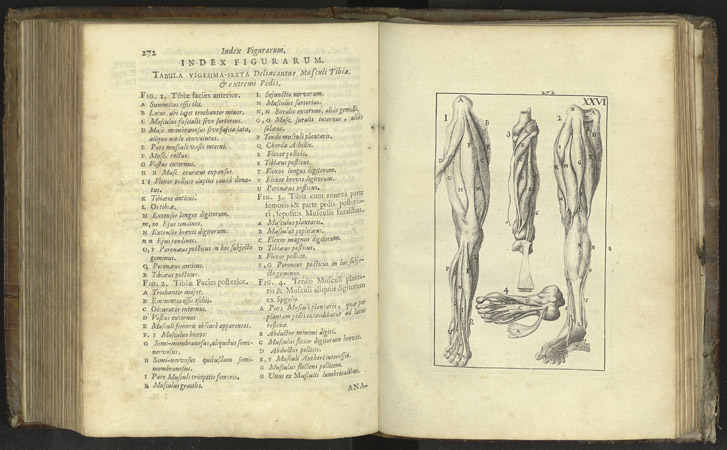 272 Index Figurarum.
INDEX FIGURARUM.
TABULA VIGESIMA-SEXTA Delineantur Musculi Tibiæ,
& extremi Pedis.
FIG. 1. Tibiæ facies anterior.
A Summitas ossis ilii.
B Locus ubi jacet trochanter minor.
C Musculus fascialis sive sartorius.
D Musc. membranosus seu fascia lata,
aliquo modo convolutus.
E Pars musculi vasti interni.
F Musc. rectus.
G Vastus externus.
H H Musc. cruralis expansus.
tus.
K Tibiæus anticus.
M Extensor longus digitorum.
m, m Ejus tendines.
N Extensor brevis digitorum.
n n Ejus tendines.
O, P Peronæus posticus in hoc subjecto
geminus.
Q Peronæus anticus.
R Tibiæus posticus.
FIG. 2. Tibiæ Facies posterior.
A Trochanter major.
B Eminentia ossis ischii.
C Obturator internus.
D Vastus externus
E Musculi femoris obscurè apparentes.
F, F Musculus biceps.
G Semi-membranosus, aliquibus semi-
nervosus.
H Semi-nervosus quibusdam semi-
membranosus.
I Pars Musculi tricipitis femoris.
K Musculus gracilis.
L Sejunctio nervorum.
M Musculus sartorius.
N, N Suralis externus, aliis gemelli.
O, O Musc. suralis internus, aliis
solæus.
P Tendo musculi plantaris.
Q Chorda Achillis.
R Flexor pollicis.
S Tibiæus posticus.
T Flexor longus digitorum.
V Flexor brevis digitorum.
U Peronæus posticus.
FIG. 3. Tibia cum annexa parte
femoris & parte pedis posterio-
ri, sepositis Musculis suralibus.
A Musculus plantaris.
B Musculus popliteus.
C Flexor magnus digitorum.
D Tibiæus posticus.
E Flexor pollicis.
F, G Peronæus posticus in hoc subje-
cto geminus.
FIG. 4. Tendo Musculi planta-
ris & Musculi aliquot digitorum
ex Spigelio
A Pars Musculi plantaris, quæ per
plantam pedis extendebatur ad latus
reflexa.
B Abductor minimi digiti.
C Musculus flexor digitorum brevis.
D Abductor pollicis.
E, F Musculi Authori interossei.
G Musculus flectens pollicem.
H Unus ex Musculis lumbricalibus.
ANA-
272
XXVI
1
3
2
4